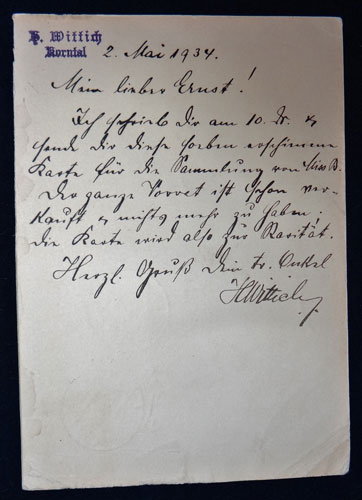 H. Wittich
Korntal
2. Mai 1934.
Mein lieber Ernst!
Ich schrieb dir am 10. &
sende dir diese soeben erschienene
Karte für die Sammlung von Miss B.
Der ganze Vorrat ist schon ver-
kauft & nichts mehr zu haben;
die Karte wird also zur Rarität.
Herzl. Gruß Dein tr. Onkel
HWittich